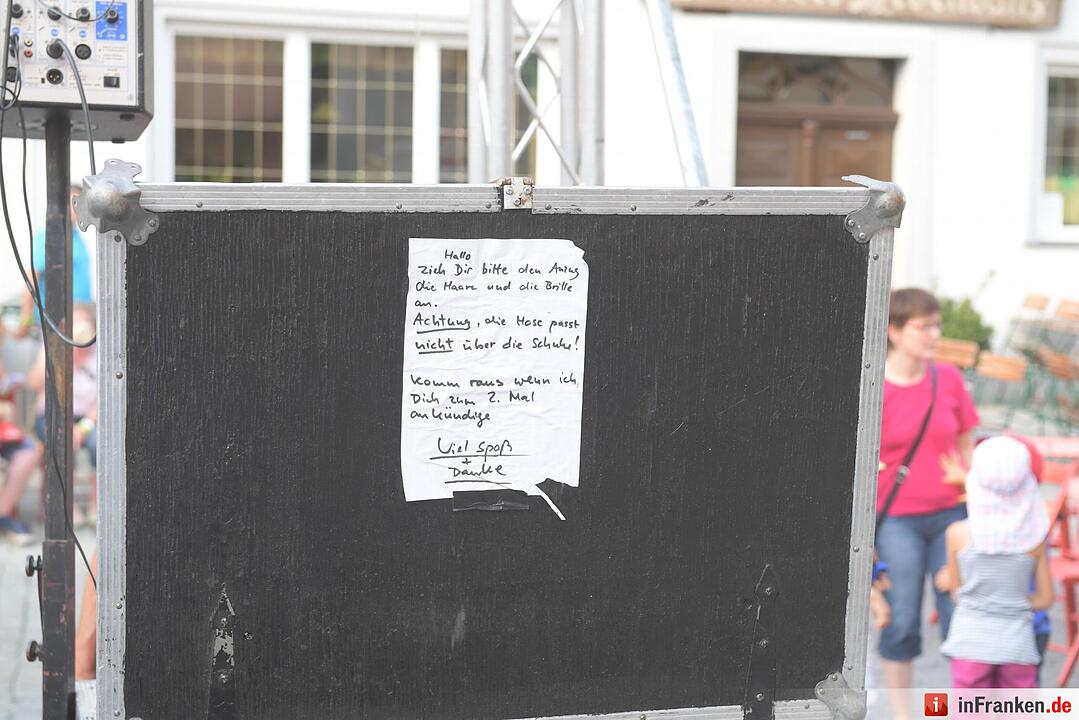 Hallo
zieh Dir bitte den Anzug
die Haare und die Brille
an.
Achtung, die Hose passt
nicht über die Schuhe!
Komm raus wenn ich
Dich zum 2. Mal
ankündige
Viel Spaß
+
Danke
inFranken.de